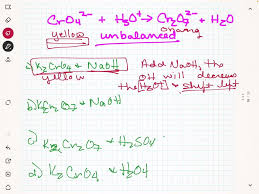 CrO₄²⁻ + H₃O⁺ → Cr₂O₇²⁻ + H₂O
yellow unbalanced orang
a) K₂CrO₄ & NaOH Add NaOH, the
yellow OH will decrease
the [H₃O⁺] & shift left
b) K₂Cr₂O₇ & NaOH
c) K₂Cr₂O₇ & H₂SO₄
d) K₂CrO₄ & H₂O₄